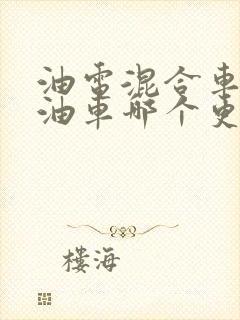 油電混合車
油車哪个更
樓海